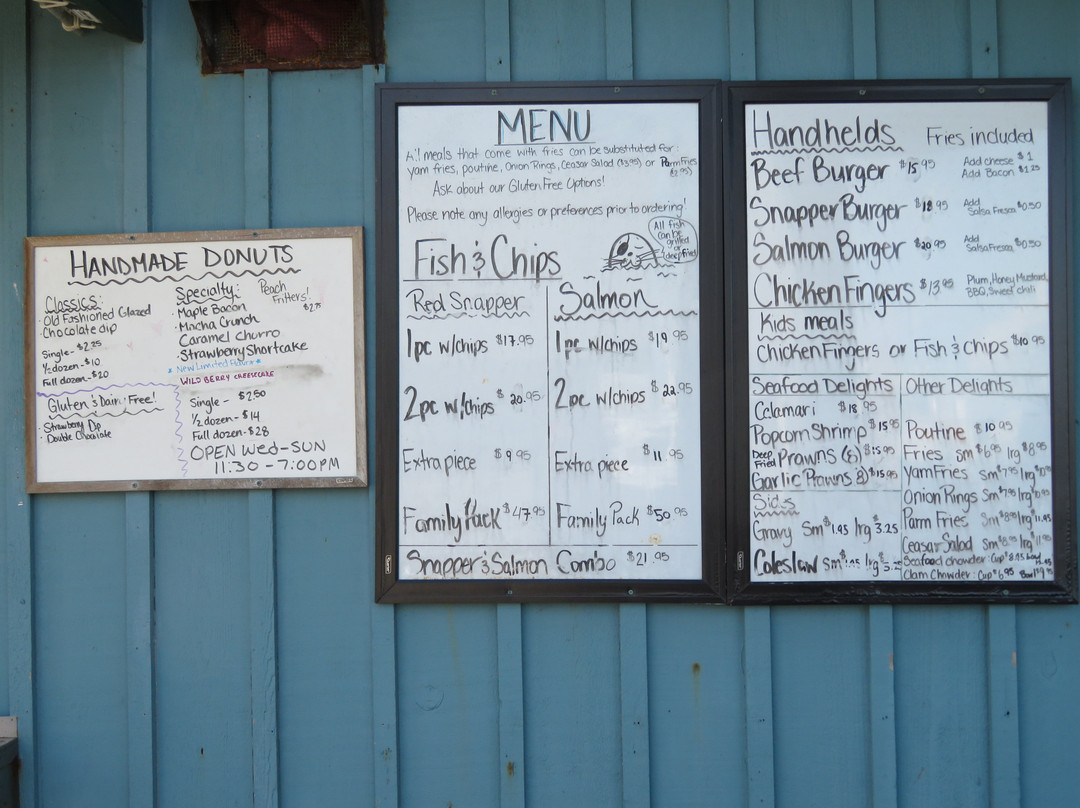 HANDMADE DONUTS
Classics:
· Old Fashioned Glazed
· Chocolate dip
Single - $2.25
½ dozen - $10
Full dozen - $20
Gluten & Dairy Free!
· Strawberry Dip
· Double Chocolate
Specialty:
Peach Fritters!
$2.75
· Maple Bacon
· Mocha Crunch
Caramel Churro
· Strawberry Shortcake
* New Limited Flavor *
WILD BERRY CHEESECAKE
Single - $2.50
½ dozen - $14
Full dozen - $28
OPEN Wed-SUN
11:30 - 7:00PM
MENU
All meals that come with fries can be substituted for:
yam fries, poutine, Onion Rings, Ceasar Salad ($3.95) or Parm Fries
Ask about our Gluten Free Options!
Please note any allergies or preferences prior to ordering!
Fish & Chips
All fish can be grilled or deep fried!
Red Snapper
1pc w/chips $17.95
2pc w/chips $20.95
Extra piece $9.95
Family Pack $47.95
Salmon
1pc w/chips $19.95
2pc w/chips $22.95
Extra piece $11.95
Family Pack $50.95
Snapper & Salmon Combo $21.95
Handhelds Fries included
Beef Burger $15.95 Add cheese $1
Add Bacon $1.25
Snapper Burger $18.95 Add Salsa Fresca $0.50
Salmon Burger $20.95 Add Salsa Fresca $0.50
Chicken Fingers $13.95 Plum, Honey Mustard,
BBQ, Sweet chili
Kids meals
Chicken Fingers or Fish & Chips $10.95
Seafood Delights
Calamari $18.95
Popcorn Shrimp $15.95
Deep Fried Prawns (8) $15.95
Garlic Prawns (8) $15.95
Sides
Gravy Sm $1.95 lrg $3.25
Coleslaw Sm $1.95 lrg
Other Delights
Poutine $10.95
Fries sm $6.95 lrg $8.95
Yam Fries Sm $7.95 lrg
Onion Rings Sm $7.95 lrg
Parm Fries Sm $8.95 lrg $11.95
Ceasar Salad Sm $8.95 lrg $11.95
Seafood chowder: Cup $8.95 Bowl
Clam Chowder: Cup $6.95 Bowl $9.95